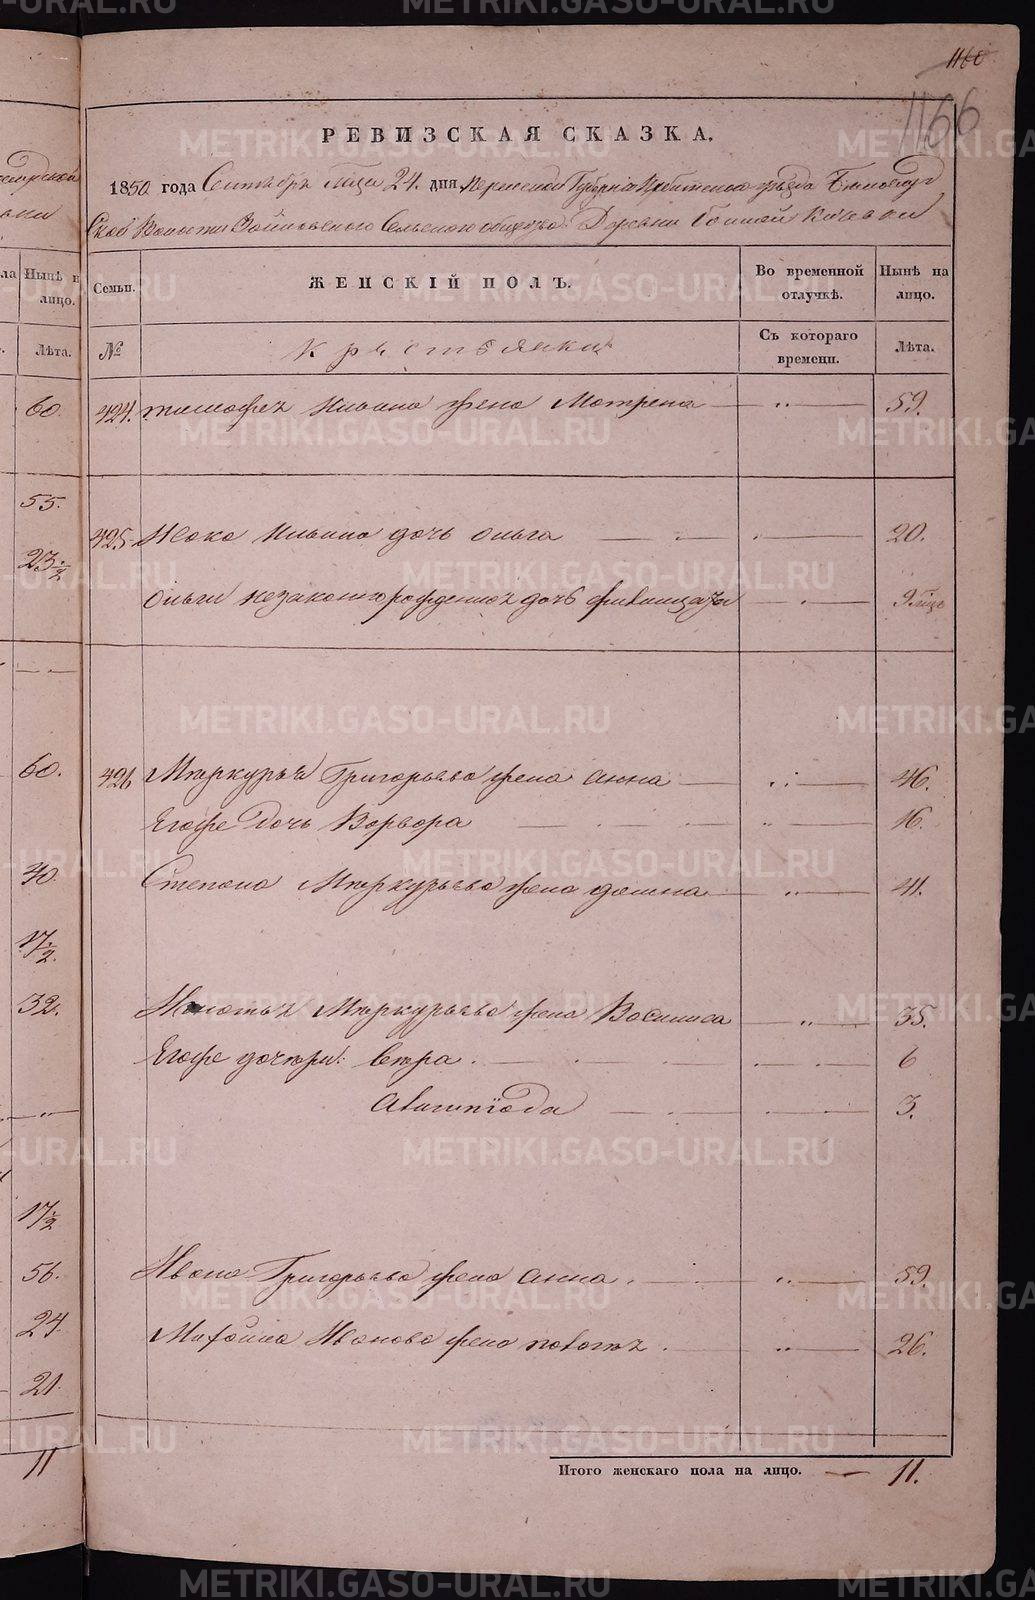 METRIKI.GASO-URAL.RU
1160
1166
РЕВИЗСКАЯ СКАЗКА.
1850 года Сентября мца 24 дня Пермской Губернiи Ирбитскаго уѣзда
Волости Сельскаго общества Деревни
Семьи. ЖЕНСКІЙ ПОЛЪ. Во временной отлучкѣ. Нынѣ на лицо.
№ Крестьянки Съ котораго времени. Лѣта.
424. Тимофея Ильина жена Матрена — „ — 59.
425. Иова Ильина дочь Ольга — 20.
Ольги незаконнорожденная дочь — 9 мцъ
426 Меркурья Григорьева жена Анна — „ — 46.
Егоже дочь Варвара — „ — 16.
Степана Меркурьева жена Домна — „ — 41.
Меркурьева жена Василиса — „ — 35.
Егоже дочери: Вера — 6
3.
Ивана Григорьева жена Анна — „ — 59.
Михайла Иванова жена — „ — 26.
Итого женскаго пола на лицо. — 11.
Нынѣ н
лицо.
Лѣта.
60.
55.
23 ½
60.
40.
17 ½
32.
17 ½
56.
24.
21.
11